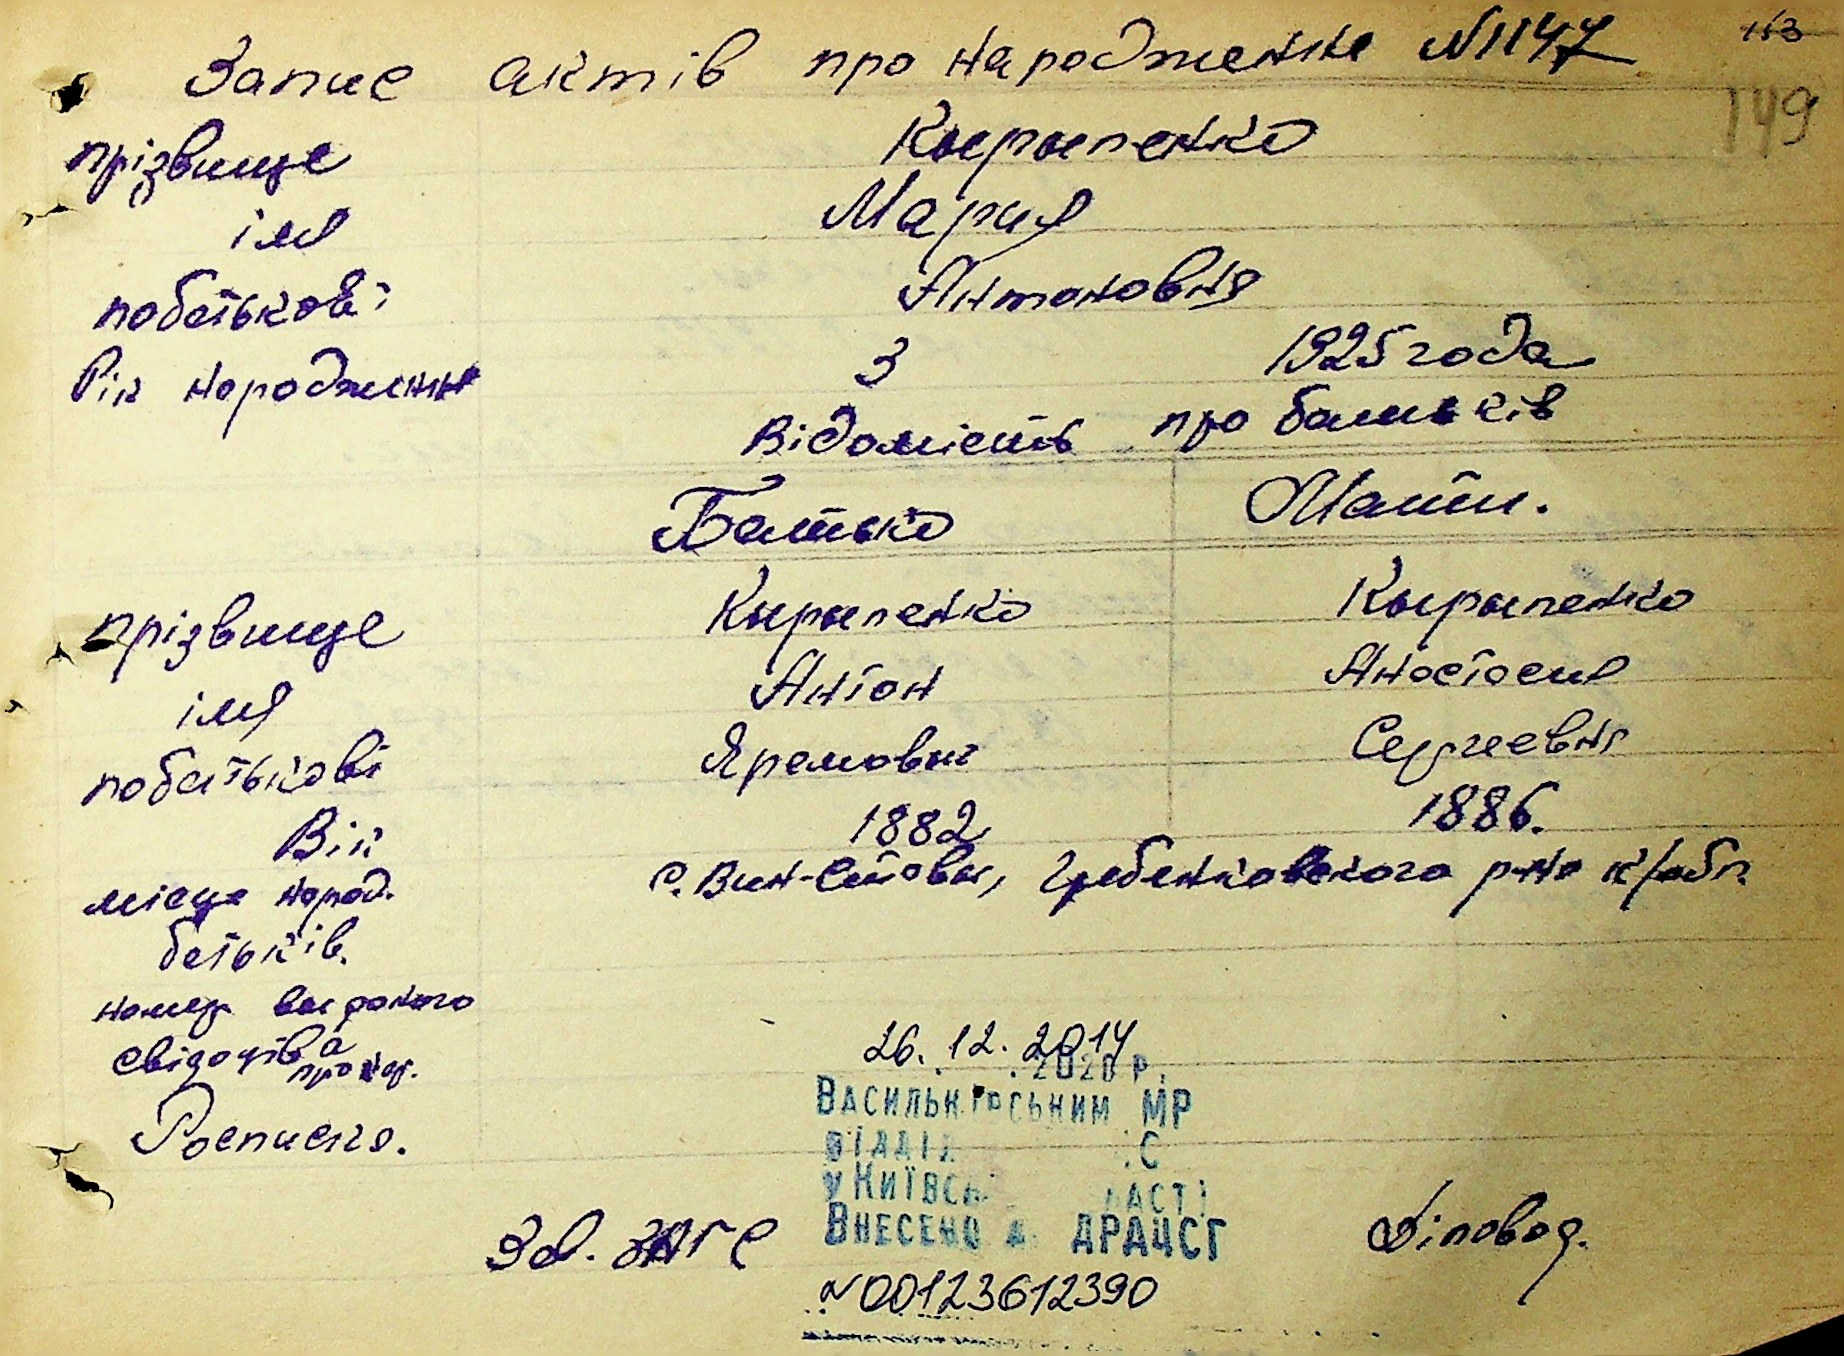 Запис актів про народження №1147
163
149
прізвище Кырыпенко
імя Мария
побатькові Антоновна
Рік народження 3 1925 года
Відомість про батьків
Батько Мати.
прізвище Кырыпенко Кырыпенко
імя Антон Анастасия
побатькові Яремовыч Сергеевна
Вік 1882 1886.
місце народ. с. Вин-Ставы, Гребенковского р-на к/обл.
батьків.
номер выданого
свідоцтва
про нар.
Росписка.
26. 12. 2014
. . 2020 р.
Васильківським МР
відділ С
у Київськ асті
Внесено д ДРАЦСГ
Зав. ЗАГС Діловод.
№00123612390